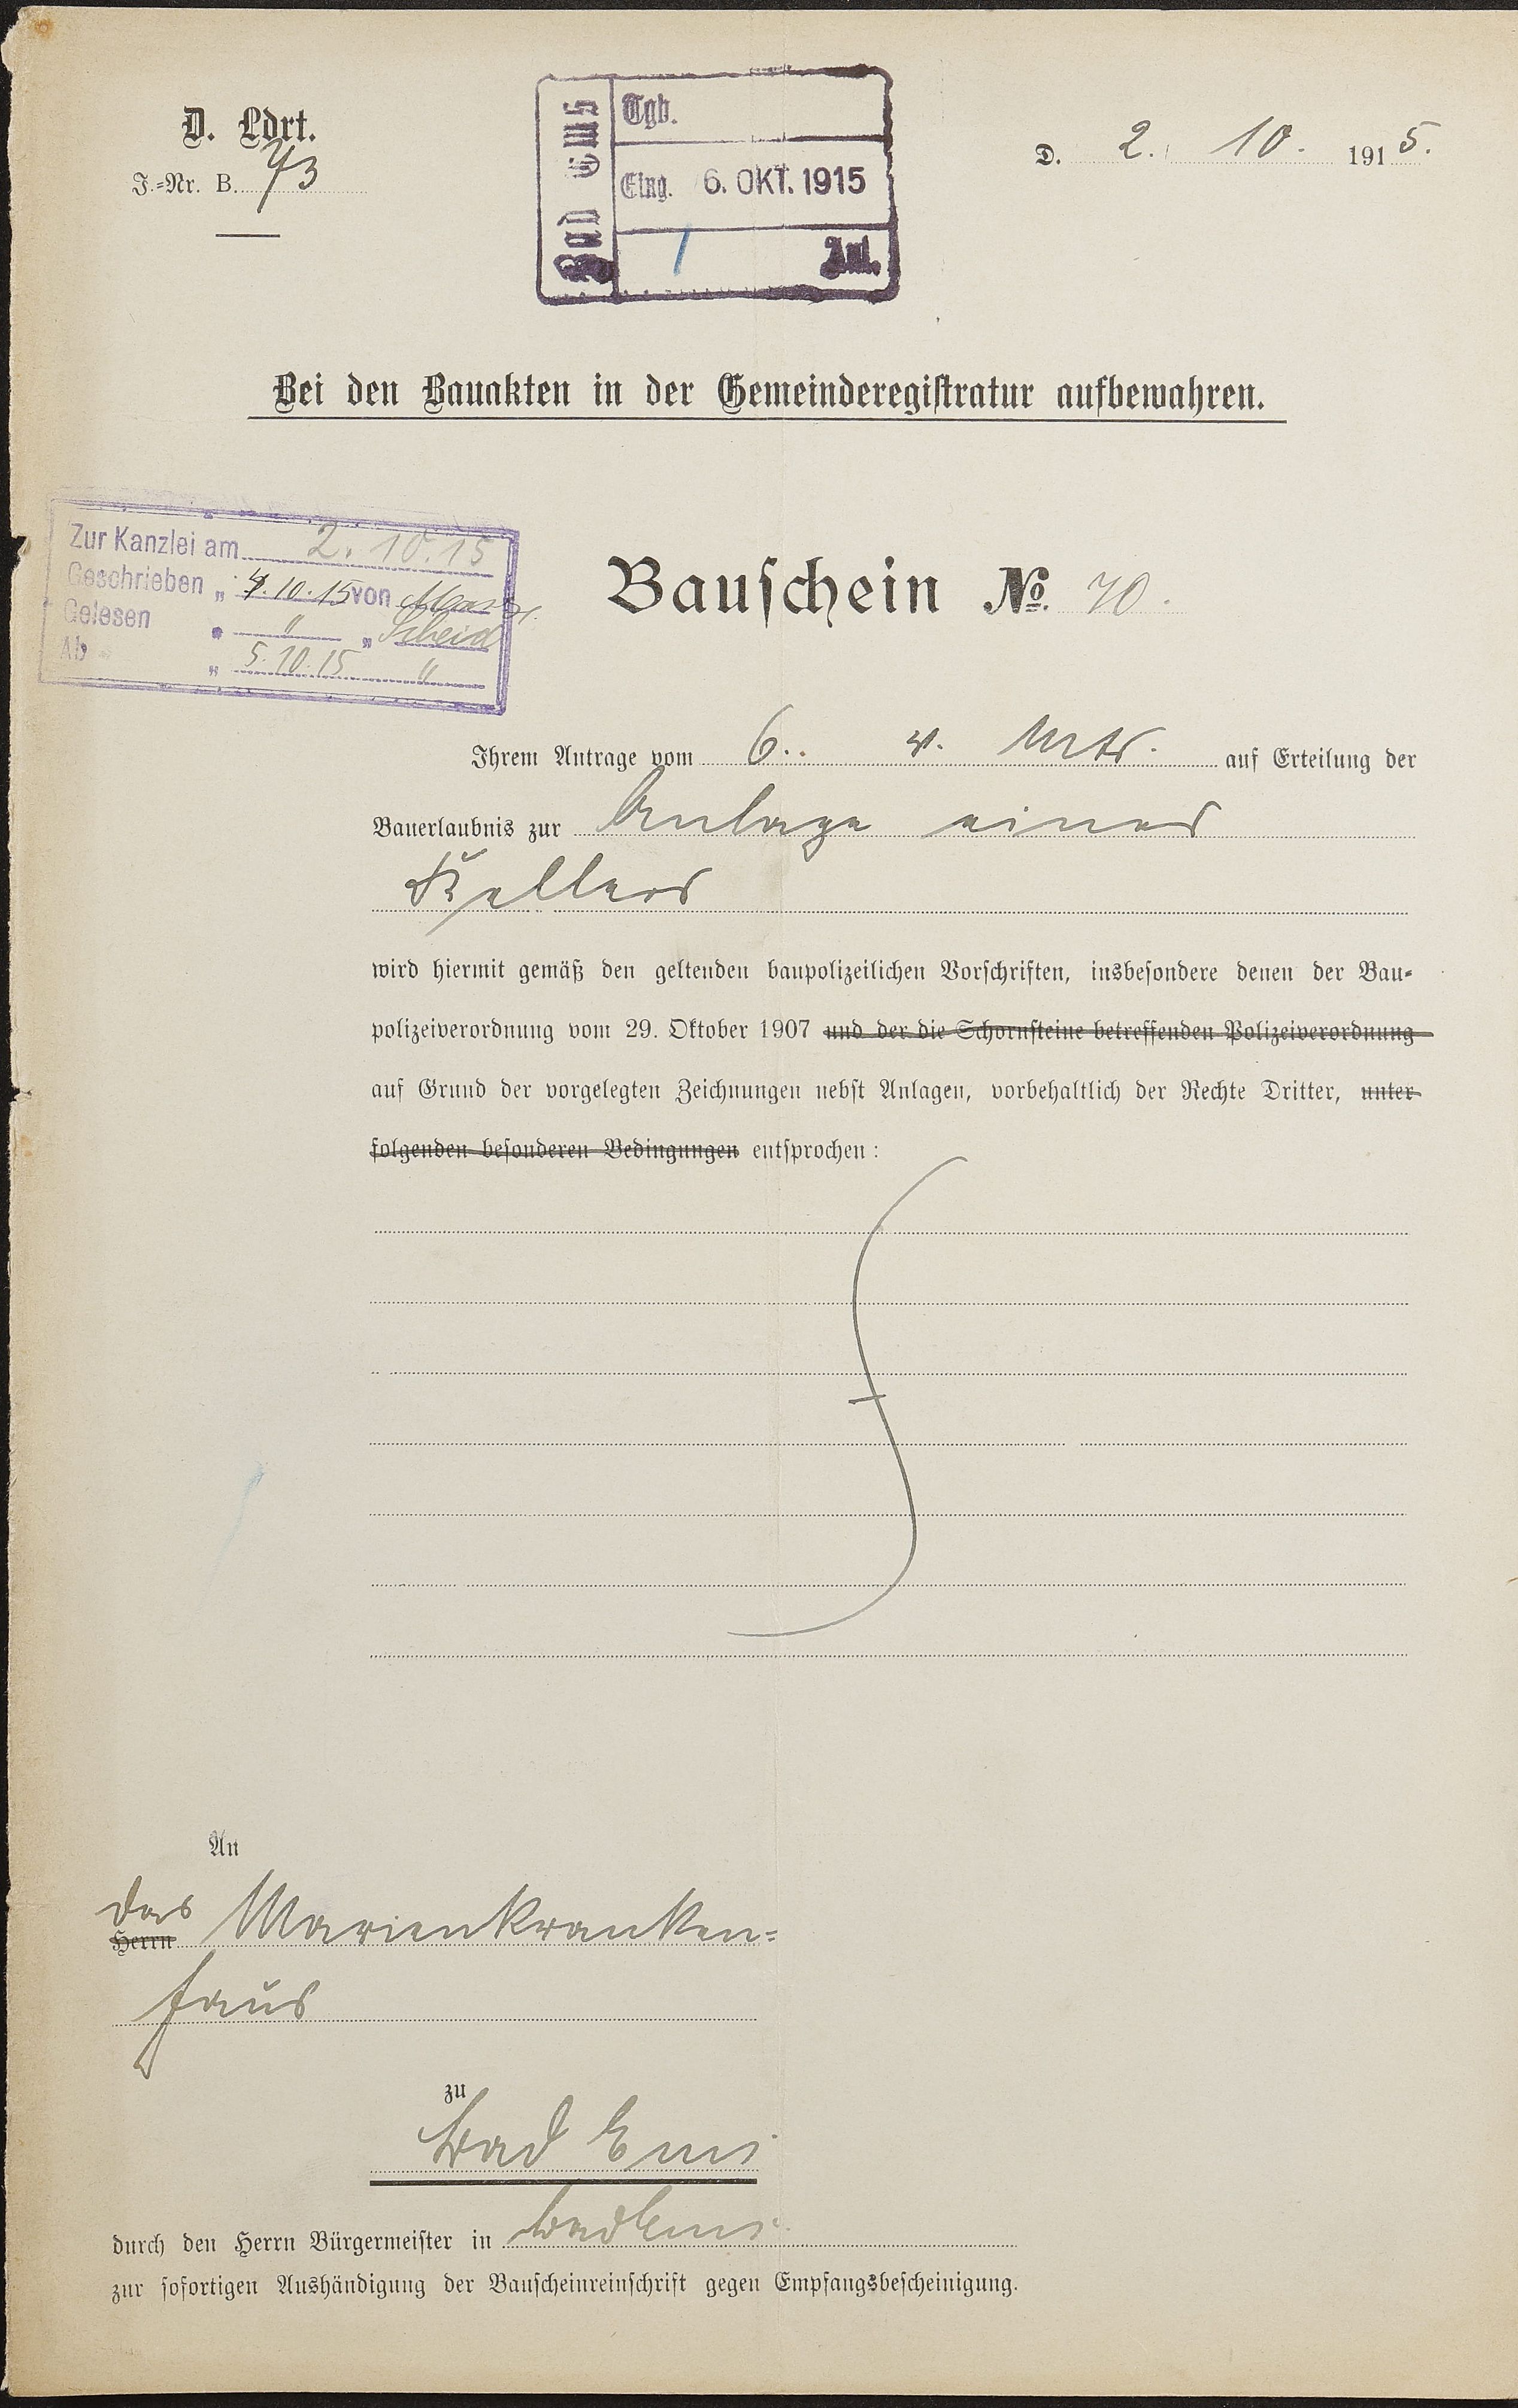 D. Ldrt.
J.=Nr. B. 73
Bad Ems
Tgb.
Eing. 6. OKT. 1915
1 Anl.
D. 2. 10. 1915.
Bei den Bauakten in der Gemeinderegistratur aufbewahren.
Zur Kanzlei am 2. 10. 15
Geschrieben „ 4. 10. 15 von
Gelesen „ " „ Scheid
Ab „ 5. 10. 15 "
Bauschein No. 70.
Ihrem Antrage vom 6. v. Mts. auf Erteilung der
Bauerlaubnis zur Anlage eines
Kellers
wird hiermit gemäß den geltenden baupolizeilichen Vorschriften, insbesondere denen der Bau=
polizeiverordnung vom 29. Oktober 1907 und der die Schornsteine betreffenden Polizeiverordnung
auf Grund der vorgelegten Zeichnungen nebst Anlagen, vorbehaltlich der Rechte Dritter, unter
folgenden besonderen Bedingungen entsprochen:
An
das
Herrn Marienkranken=
haus
zu
Bad Ems
durch den Herrn Bürgermeister in Bad Ems
zur sofortigen Aushändigung der Bauscheinreinschrift gegen Empfangsbescheinigung.